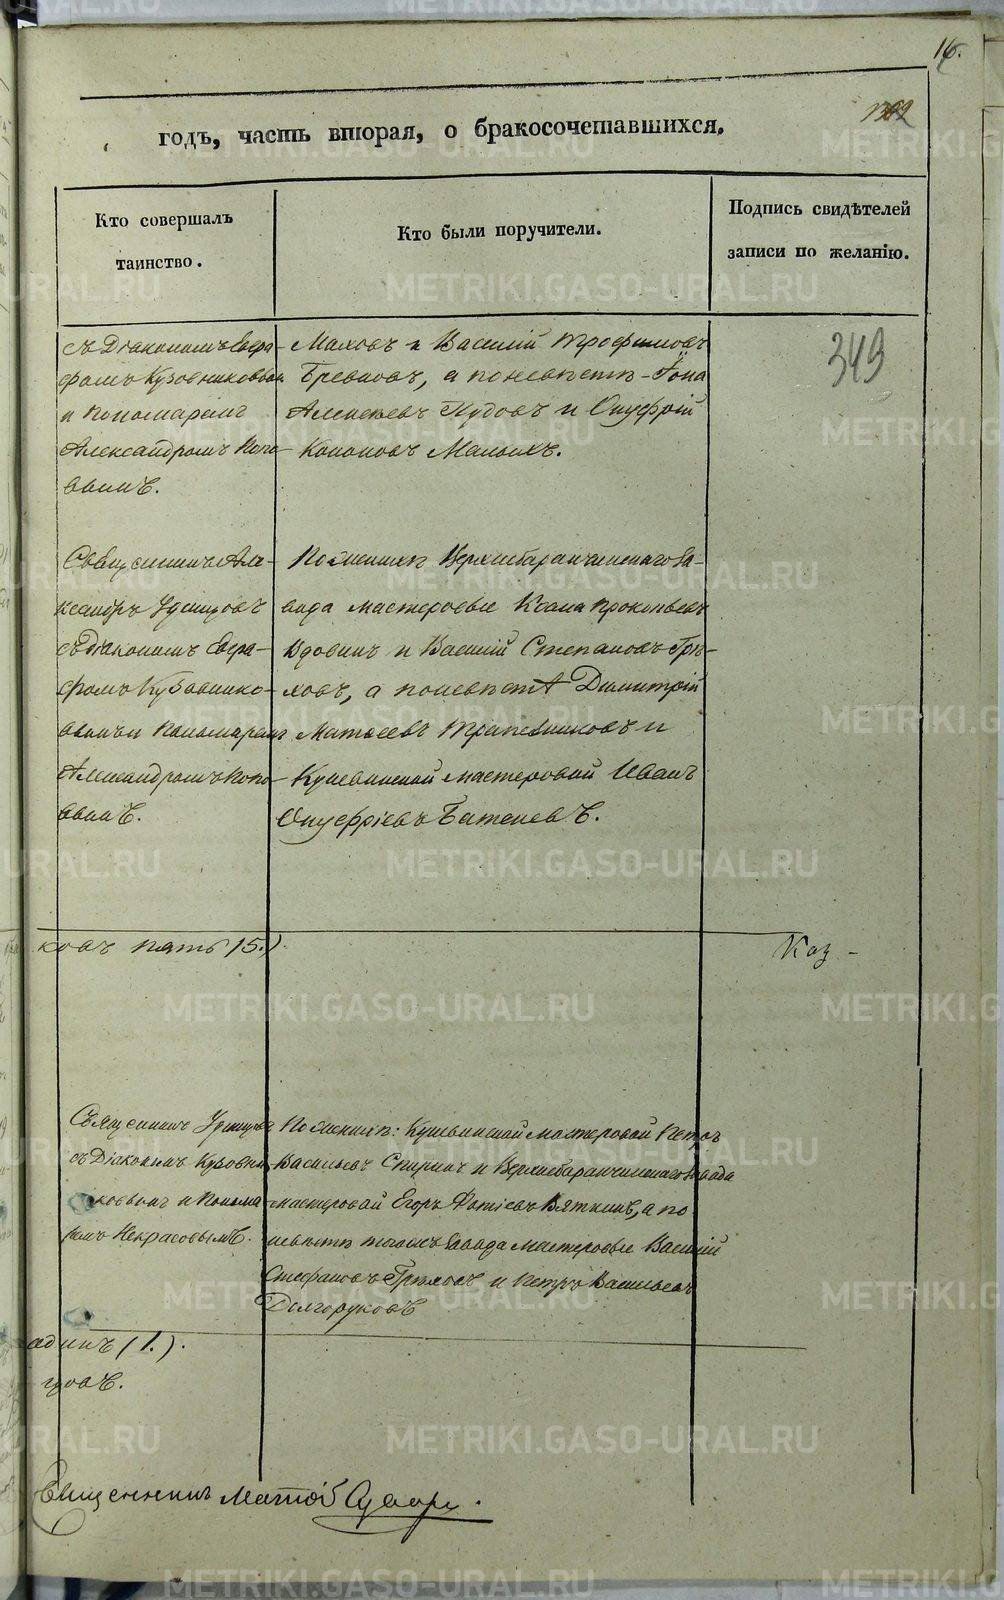 16.
годъ, часть вторая, о бракосочетавшихся.
Кто совершалъ
таинство.
Кто были поручители.
Подпись свидѣтелей
записи по желанію.
349
съ Діакономъ Евгра-
фомъ Кузовниковым
и Пономаремъ
Александромъ Попо-
вымъ.
и Василій Трофимовъ
а по невѣстѣ
Алексѣевъ и Онуфрій
Кононовъ Малыхъ.
Священникъ Але-
ксандръ Удинцовъ
съ Діакономъ Евгра-
фомъ Кузовнико-
вымъ и Пономаремъ
Александромъ Попо-
вымъ.
По женихѣ Верхнебаранчинскаго За-
вода мастеровые Козма Прокопьевъ
Вдовинъ и Василій Степановъ Гря-
ховъ, а по невѣстѣ Димитрій
Матвеевъ Трапезниковъ и
Кушвинской мастеровой Иванъ
Онуфріевъ Баженевъ.
ковъ пять (5.).
Каз-
Священникъ Удинцовъ
съ Діакономъ Кузовни-
ковымъ и Понома-
ремъ Некрасовымъ.
По женихѣ: Кушвинской мастеровой Петръ
Васильевъ Спиринъ и Верхнебаранчинскаго завода
мастеровой Егоръ Фотіевъ Вяткинъ, а по
невѣстѣ тогожъ Завода мастеровые Василій
Стефановъ Гряховъ и Петръ Васильевъ
Долгоруковъ
одинъ (1.).
цовъ.
Священникъ
METRIKI.GASO-URAL.RU